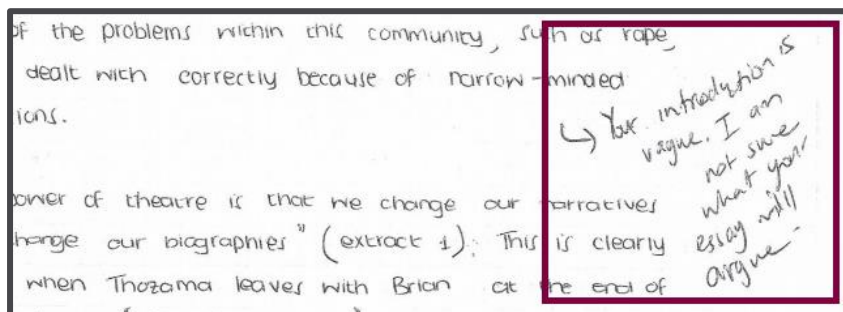 of the problems within this community, such as rape,
dealt with correctly because of narrow-minded
ions.
power of theatre is that we change our narratives
hange our biographies" (extract 1). This is clearly
when Thozama leaves with Brian at the end of
↳ Your introduction is
vague. I am
not sure
what your
essay will
argue.